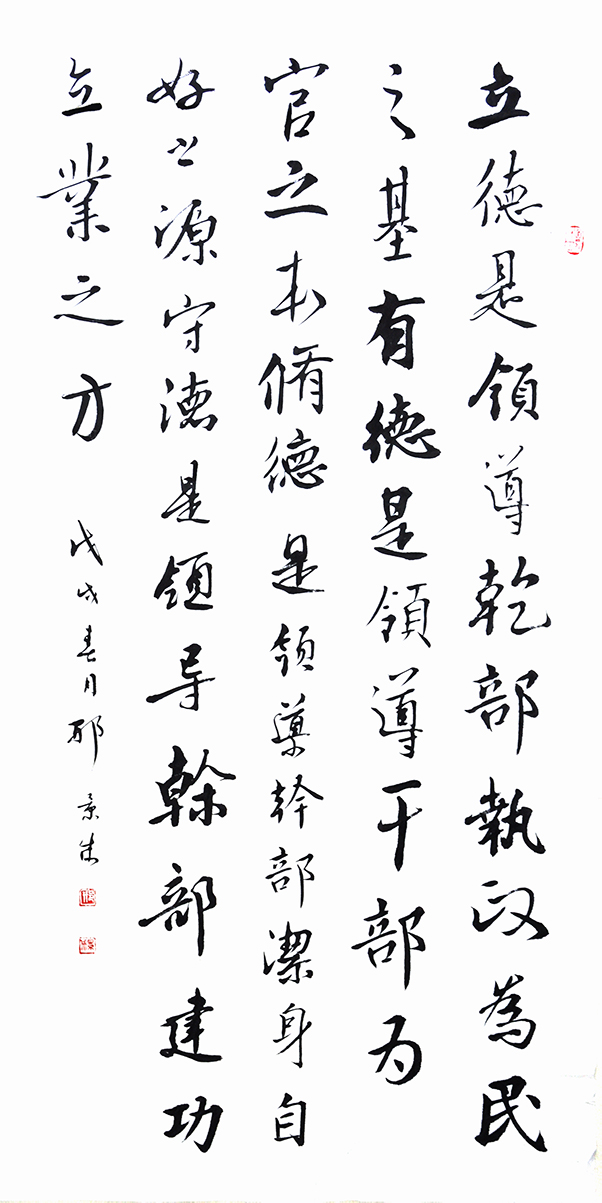 立德是領導乾部執政為民
之基有德是領導干部为
官之本脩德是领導幹部潔身自
好之源守德是领导榦部建功
立業之方
戊戌春月邢景